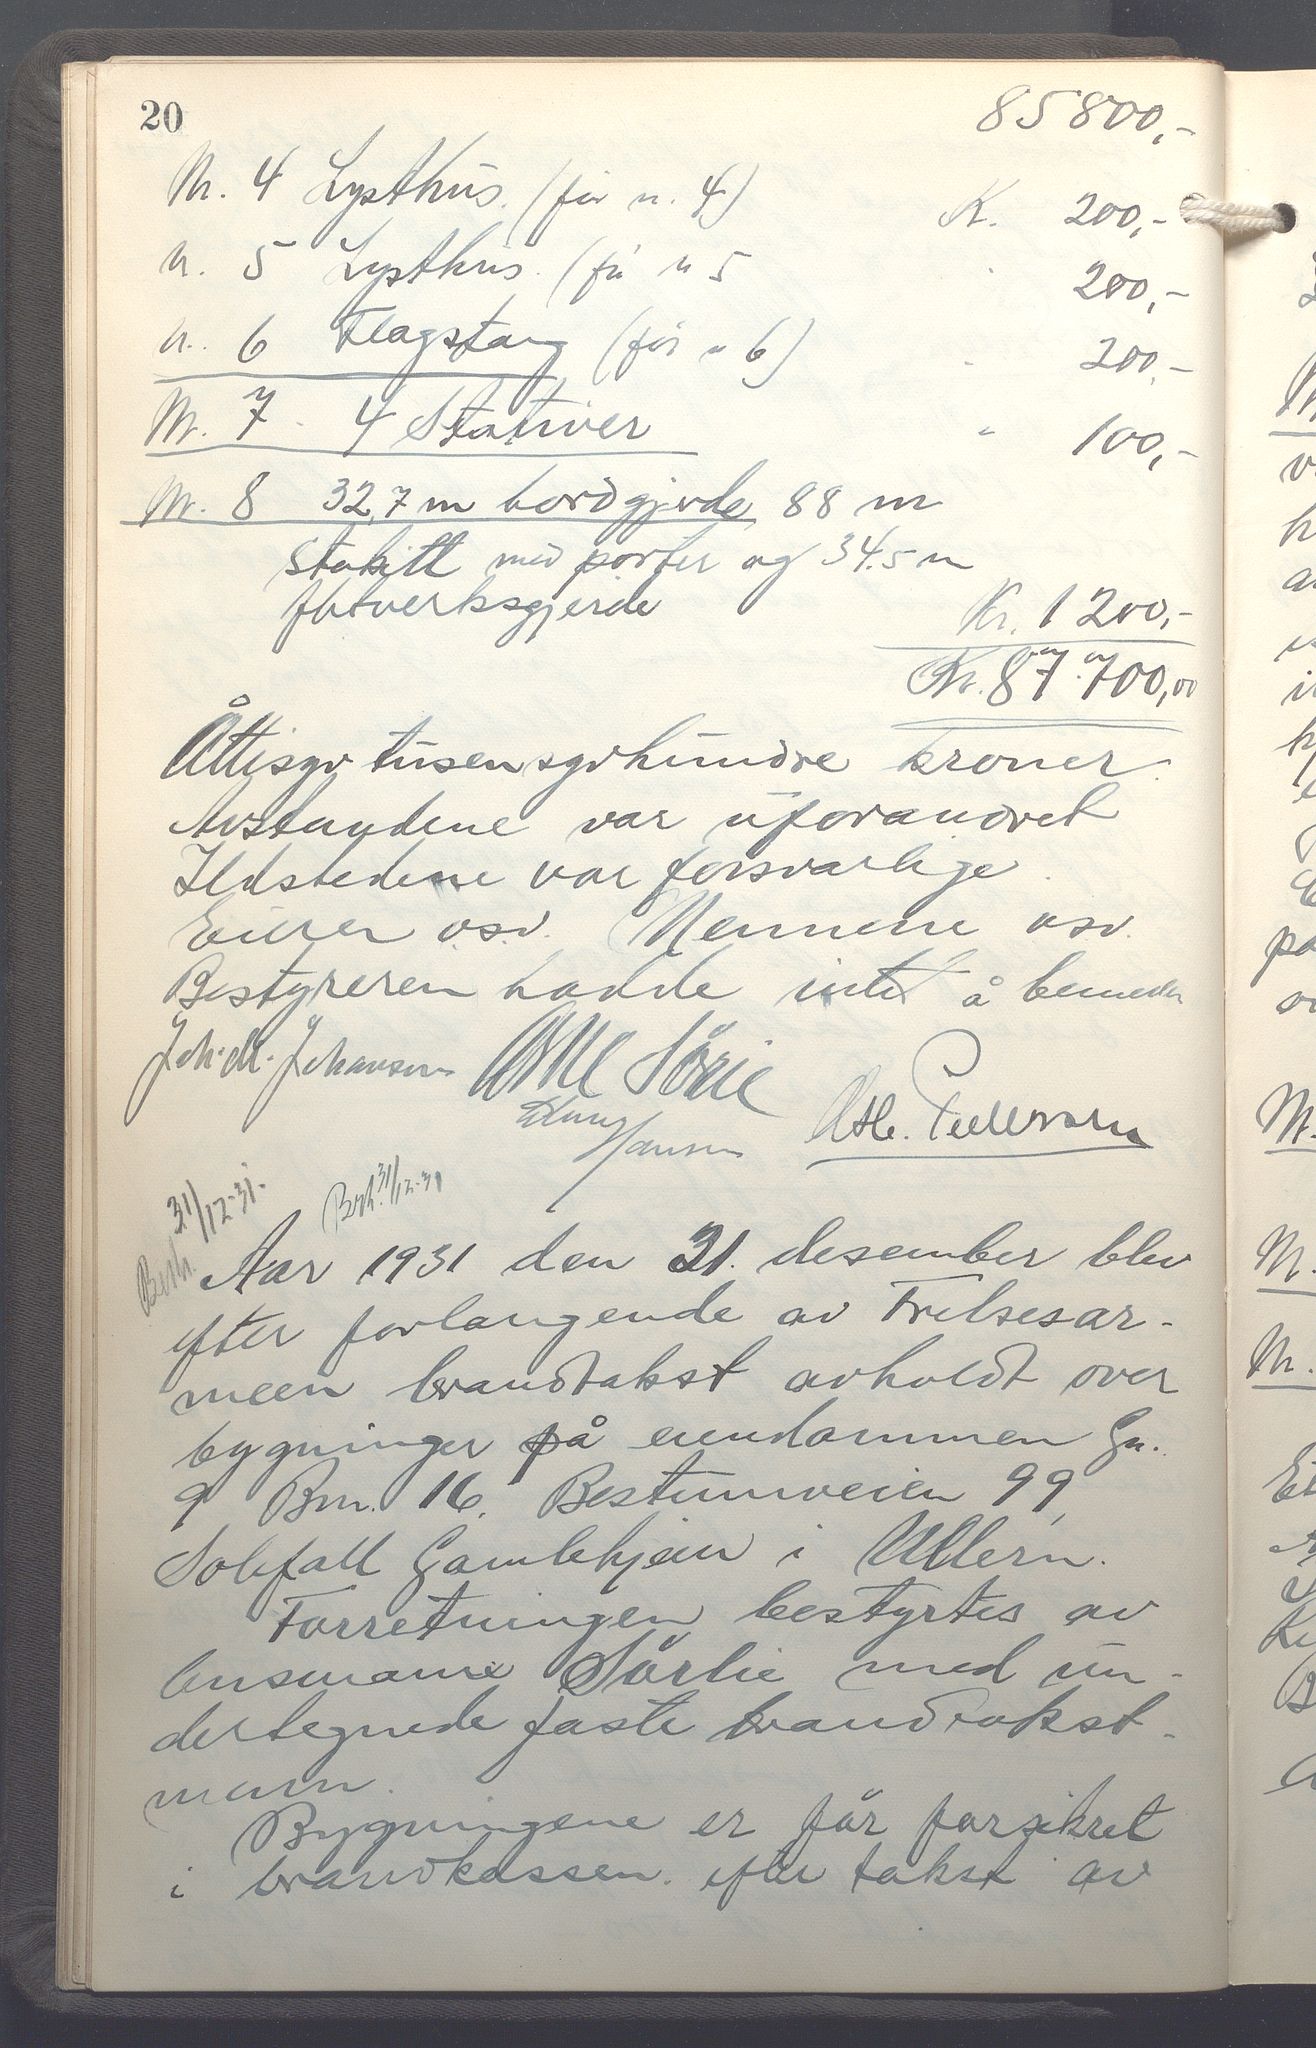 20
85800,-
Nr. 4 Lysthus. (før n. 4) K. 200,-
n. 5 Lysthus. (før n 5 200,-
n. 6 Flagstang (før n 6) 200,-
Nr. 7 4 Stativer " 100,-
Nr. 8 32,7 m bordgjerde 88 m
stakitt med porter og 34.5 m
flatverksgjerde Kr. 1200,-
Kr. 87.700,00
Åttisyv tusensyvhundre kroner.
Avstandene var uforandret
Ildstedene var forsvarlige.
Eieren osv. Mennene osv.
Bestyreren hadde intet å bemerke
Joh. M. Johansen Sørlie
Hansen Ath. Pedersen
Besk. 31/12-31. Besk. 31/12-31
Aar 1931 den 31. desember blev
efter forlangende av Frelsesar-
meen brandtakst avholdt over
bygninger på eiendommen Gn.
9 Bnr. 16. Bestumveien 99,
Solfall Gamlehjem i Ullern.
Forretningen bestyrtes av
lensmann Sørlie med un-
dertegnede faste brandtakst-
menn.
Bygningene er før forsikret
i brandkassen efter takst av